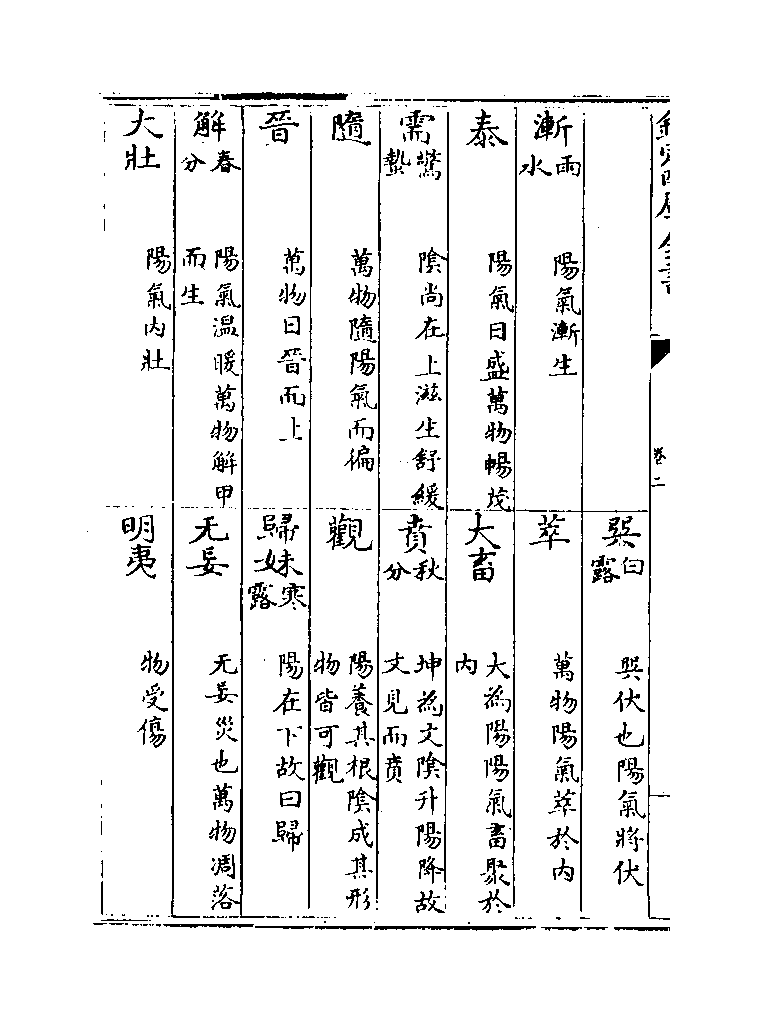 欽定四庫全書
卷二
巽 白露 巽伏也陽氣將伏
漸 雨水 陽氣漸生
萃 萬物陽氣萃於内
泰 陽氣日盛萬物暢茂
大畜 大為陽陽氣畜聚於
内
需 驚蟄 陰尚在上滋生舒緩
賁 秋分 坤為文陰升陽降故
文見而賁
隨 萬物隨陽氣而徧
觀 陽養其根陰成其形
物皆可觀
晉 萬物日晉而上
歸妹 寒露 陽在下故曰歸
解 春分 陽氣温暖萬物解甲
而生
无妄 无妄災也萬物凋落
大壯 陽氣内壯
明夷 物受傷